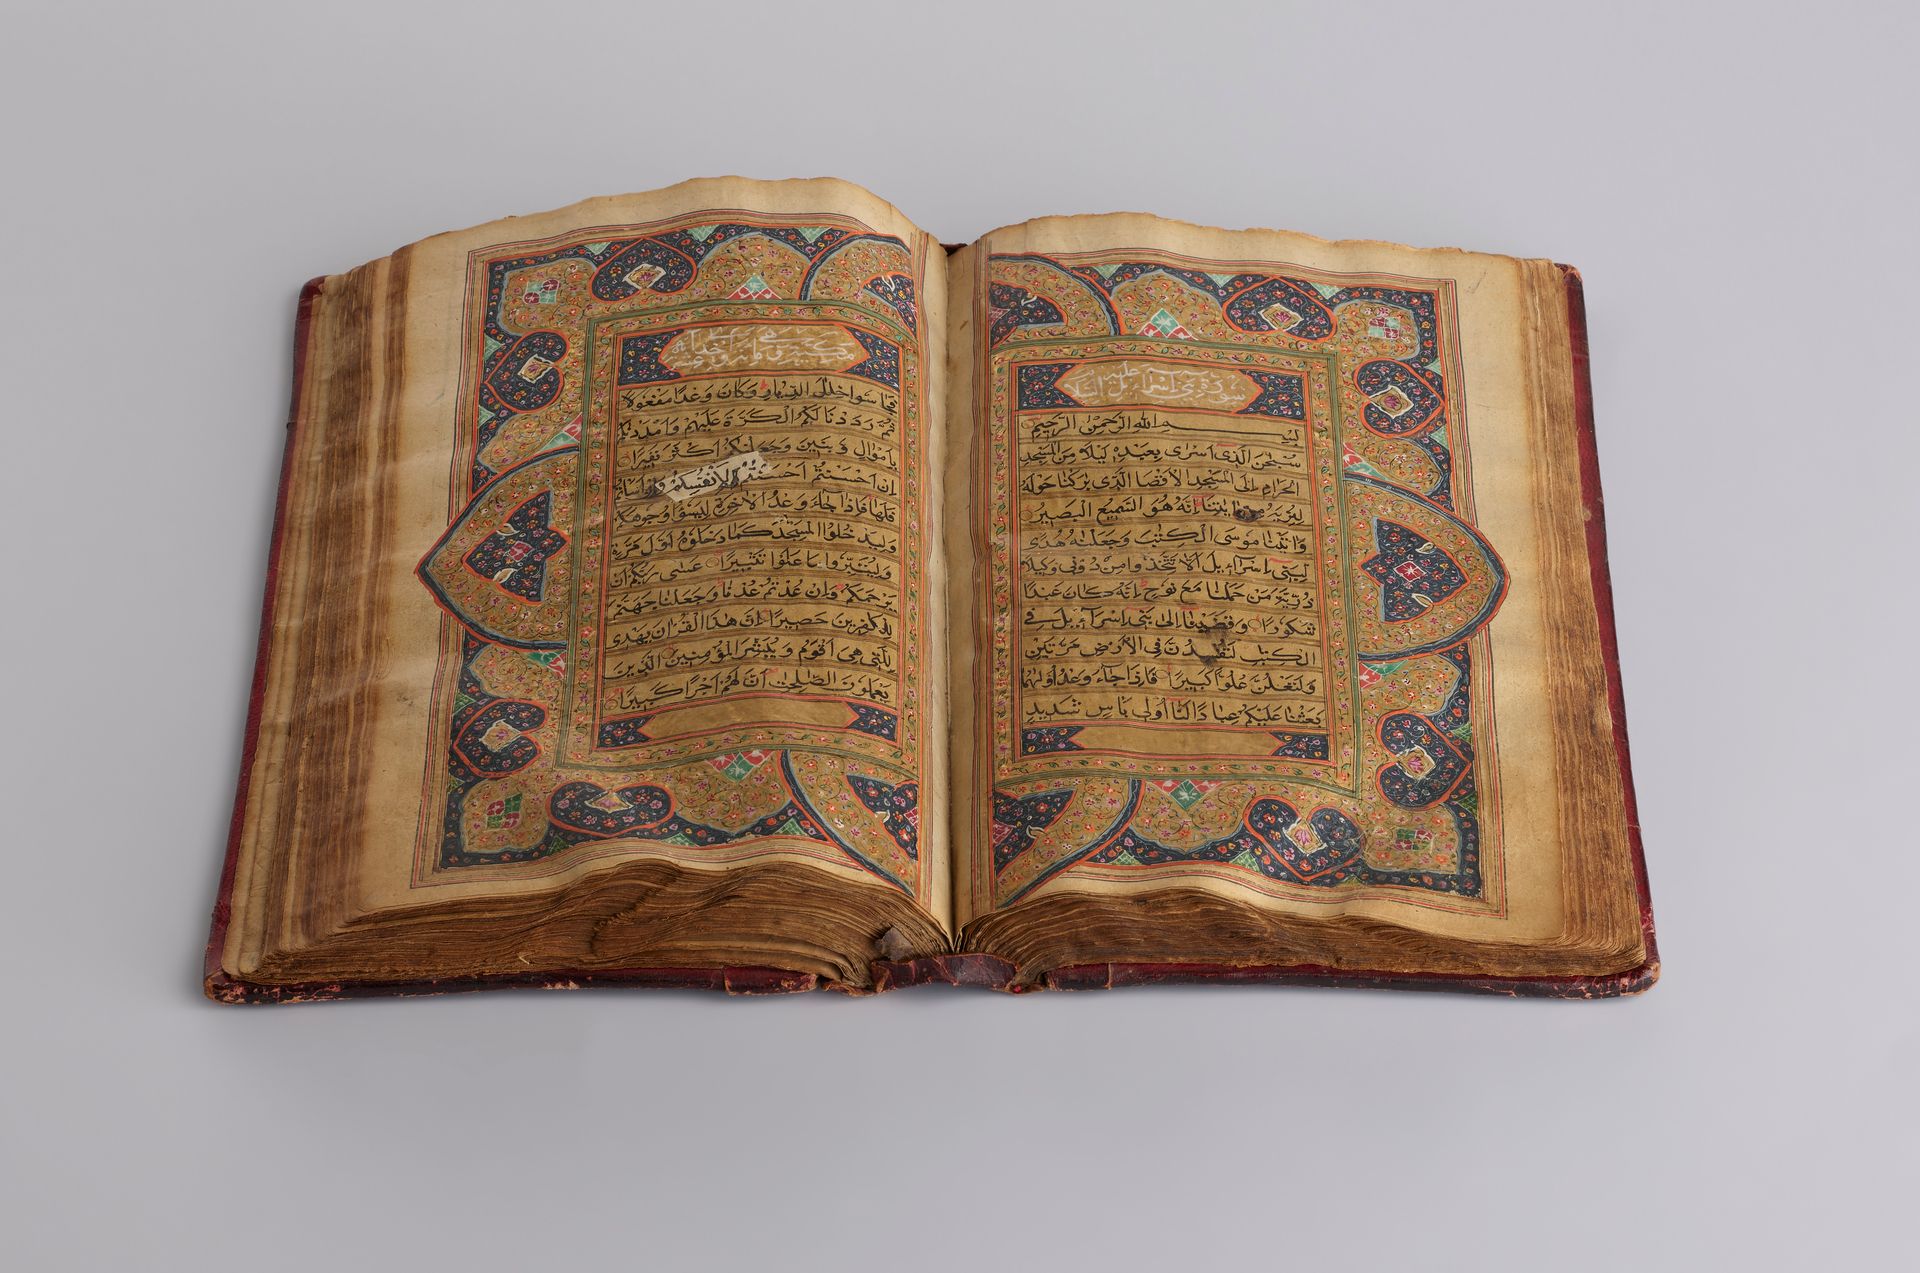 سورة بنی اسرائیل
بسم الله الرحمن الرحيم
سبحن الذى اسرى بعبده ليلا من المسجد
الحرام الى المسجد الاقصا الذى بركنا حوله
لنريه من ايتنا انه هو السميع البصير
واتينا موسى الكتب وجعلنه هدى
لبنى اسراءيل الا تتخذوا من دونى وكيلا
ذرية من حملنا مع نوح انه كان عبدا
شكورا وقضينا الى بنى اسراءيل فى
الكتب لتفسدن فى الارض مرتين
ولتعلن علوا كبيرا فاذا جاء وعد اولهما
بعثنا عليكم عبادا لنا اولى باس شديد
فجاسوا خلل الديار وكان وعدا مفعولا
ثم رددنا لكم الكرة عليهم وامددنكم
باموال وبنين وجعلنكم اكثر نفيرا
ان احسنتم احسنتم لانفسكم وان اساتم
فلها فاذا جاء وعد الاخرة ليسوا وجوهكم
وليدخلوا المسجد كما دخلوه اول مرة
وليتبروا ما علوا تتبيرا عسى ربكم ان
يرحمكم وان عدتم عدنا وجعلنا جهنم
للكفرين حصيرا ان هذا القران يهدى
للتى هى اقوم ويبشر المؤمنين الذين
يعملون الصلحت ان لهم اجرا كبيرا